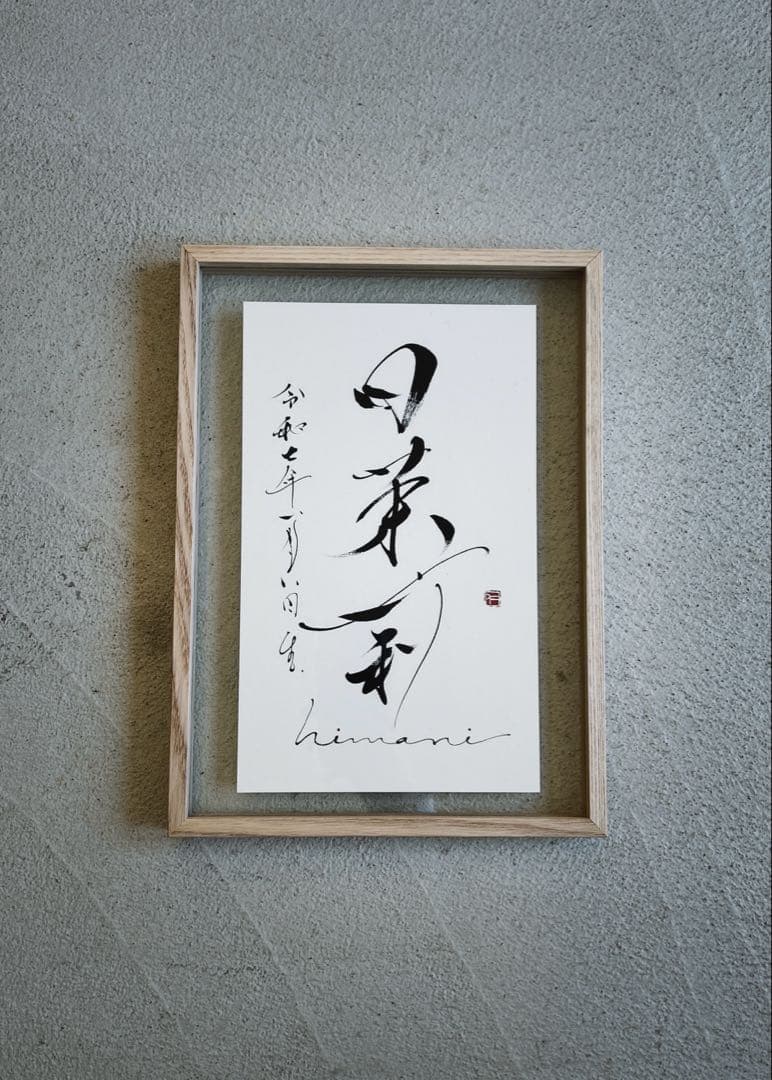 日茉莉
令和七年八月八日生
himari